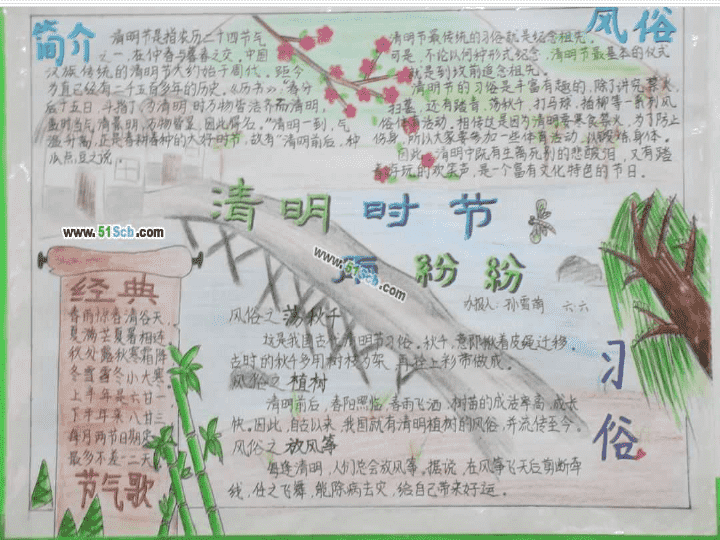 简介
清明节是指农历二十四节气
之一，在仲春与暮春之交，中国
汉族传统的清明节大约始于周代，距今
为直已经有二千五百多年的历史。《历书》："春分
后十五日，斗指丁，为清明，时万物皆洁齐而清明，
盖时当气清景明，万物皆显，因此得名。"清明一到，气
温升高，正是春耕春种的大好时节，故有"清明前后，种
瓜点豆"之说。
风俗
清明节最传统的习俗就是纪念祖先。
可是，不论以何种形式纪念，清明节最基本的仪式
就是到坟前追念祖先。
清明节的习俗是丰富有趣的，除了讲究禁火、
扫墓，还有踏青、荡秋千、打马球、插柳等一系列风
俗体育活动。相传这是因为清明要寒食禁火，为了防止
伤身，所以大家要参加一些体育活动，以锻炼身体。
因此，清明节既有生离死别的悲酸泪，又有踏
青好玩的欢笑声，是一个富有文化特色的节日。
清明时节
www.51Scb.com
www.51Scb.com
雨纷纷
办报人：孙雪 六六
经典
春雨惊春清谷天，
夏满芒夏暑相连
秋处露秋寒霜降
冬雪雪冬小大寒
上半年是六廿一
下半年来八廿三
每月两节日期定
最多不差一二天
节气歌
风俗之荡秋千
这是我国古代清明节习俗。秋千，意即揪着皮绳迁移。
古时的秋千多用树枝为架，再拴上彩带做成。
风俗之植树
清明前后，春阳照临，春雨飞洒，树苗的成活率高，成长
快。因此，自古以来，我国就有清明植树的风俗，并流传至今。
风俗之放风筝
每逢清明，人们总会放风筝。据说，在风筝飞天后剪断牵
线，任之飞舞，能除病去灾，给自己带来好运。
习俗